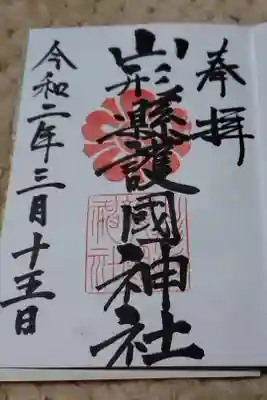 奉拝
山形縣護國神社
令和二年三月十五日